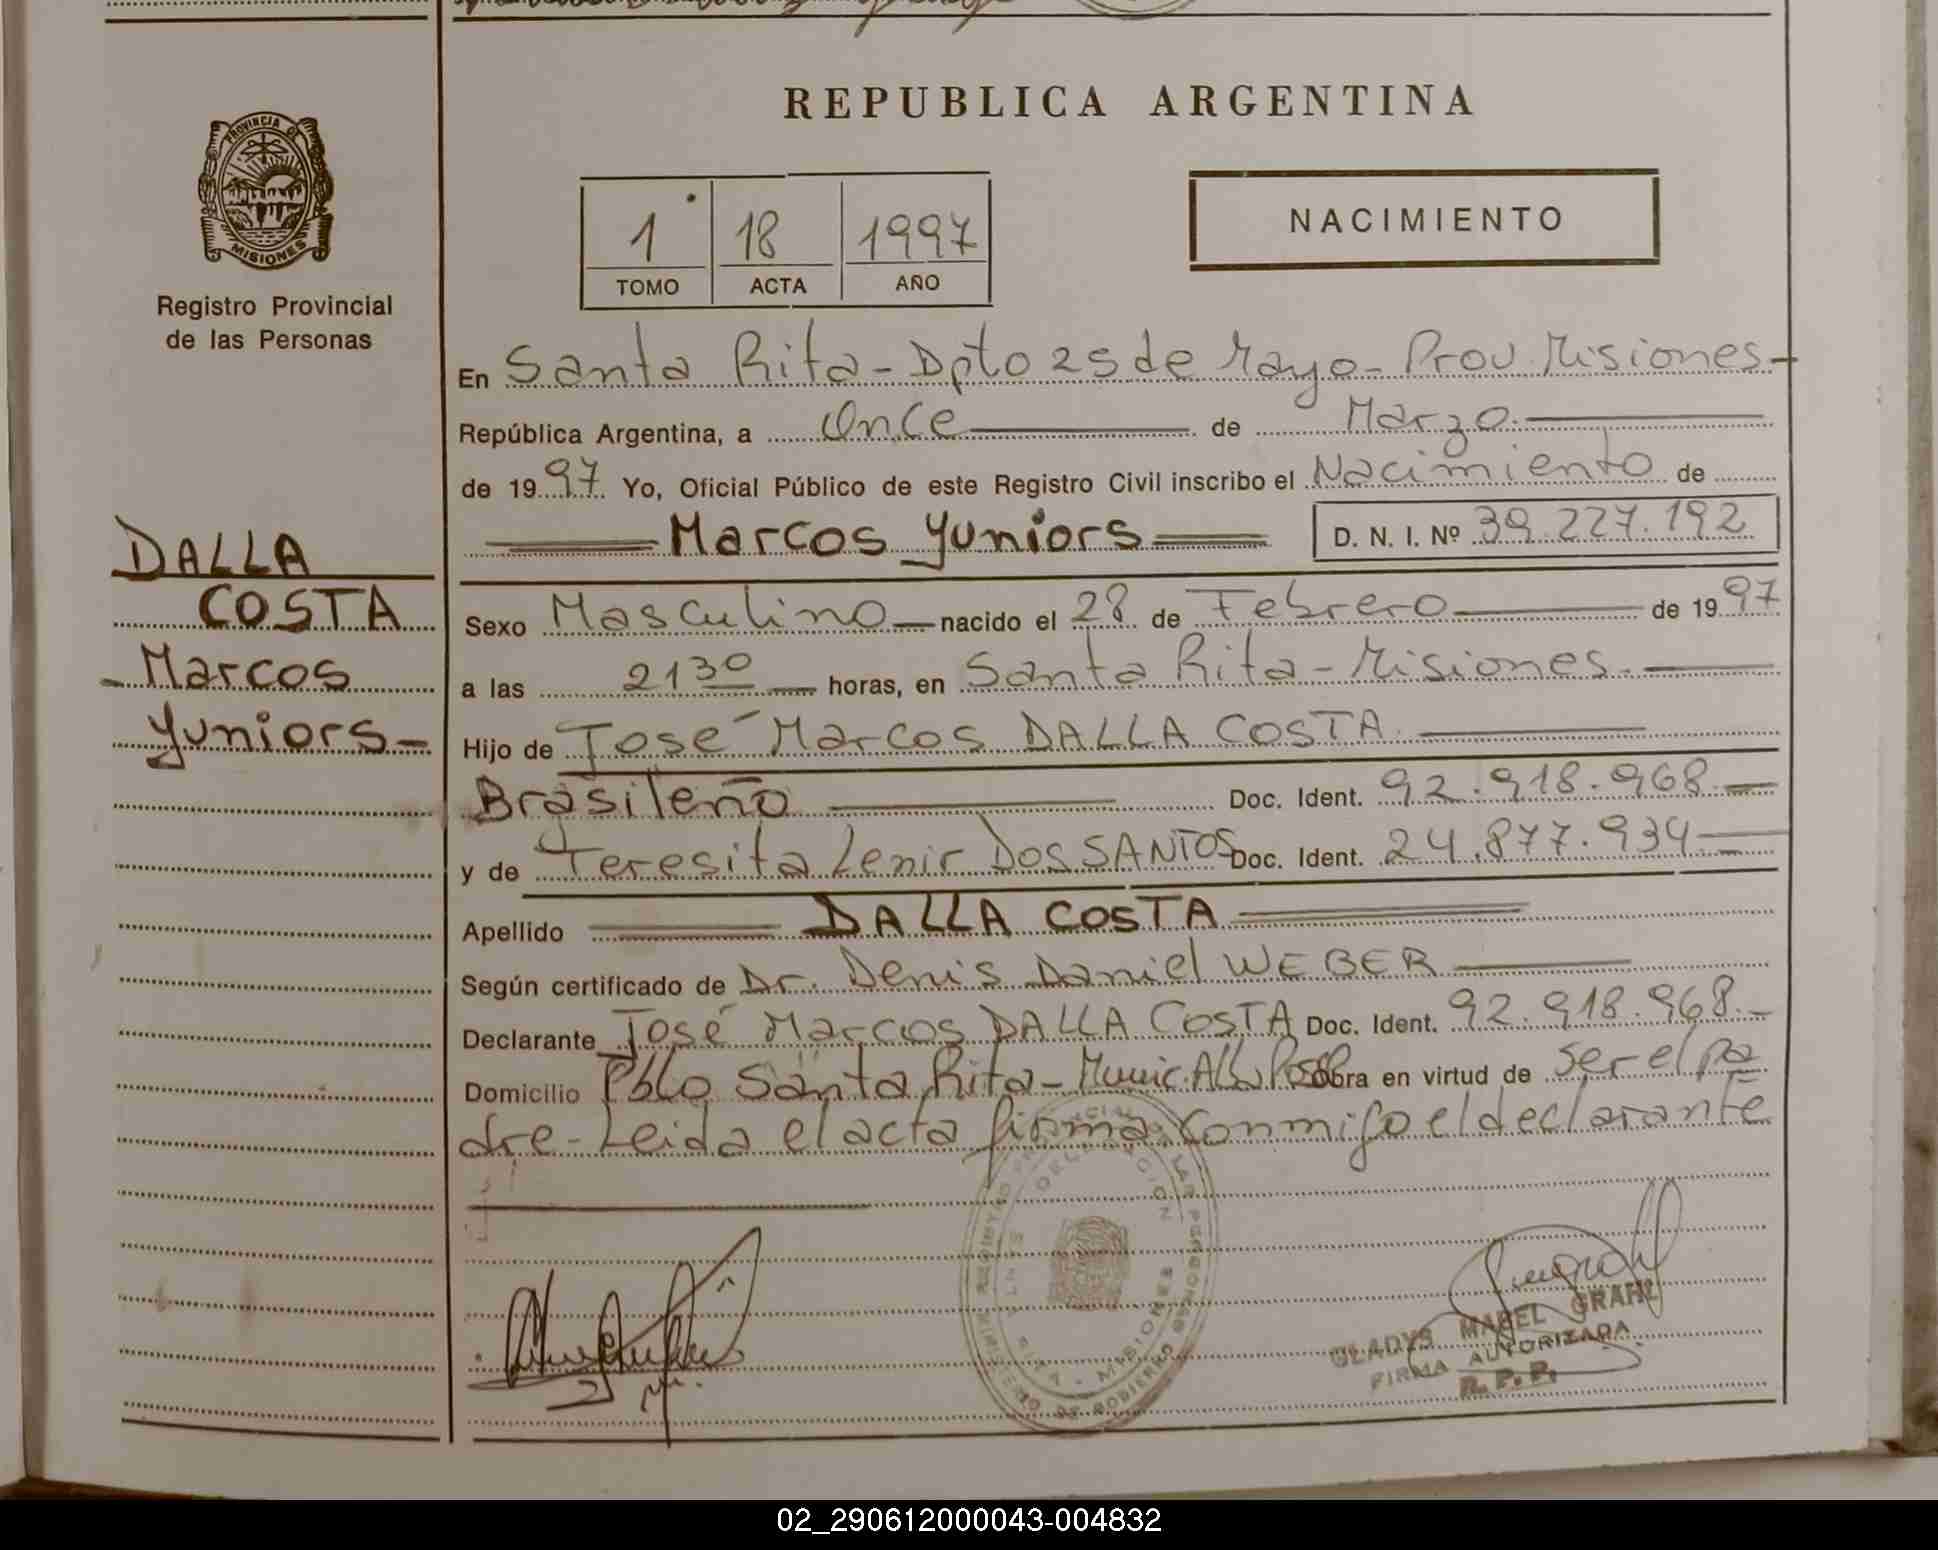 REPUBLICA ARGENTINA
PROVINCIA DE
MISIONES
Registro Provincial
de las Personas
1 18 1997
TOMO ACTA AÑO
NACIMIENTO
DALLA
COSTA
Marcos
Yuniors-
En Santa Rita - Dpto 25 de Mayo - Prov. Misiones -
República Argentina, a Once de Marzo.
de 1997 Yo, Oficial Público de este Registro Civil inscribo el Nacimiento de
Marcos Yuniors D. N. I. Nº 39.227.192
Sexo Masculino nacido el 28 de Febrero de 1997
a las 21 30 horas, en Santa Rita - Misiones.
Hijo de José Marcos DALLA COSTA
Brasileño Doc. Ident. 92.918.968.
y de Teresita Lenir DOS SANTOS Doc. Ident. 24.877.934
Apellido DALLA COSTA
Según certificado de Dr. Denis Daniel WEBER
Declarante José Marcos DALLA COSTA Doc. Ident. 92.918.968.-
Domicilio Pblo Santa Rita - Munic. Alba Posse obra en virtud de ser el pa
dre - Leida el acta firma conmigo el declarante
MISIONES
GLADYS MABEL GRAHL
FIRMA AUTORIZADA
R. P. P.
02_290612000043-004832